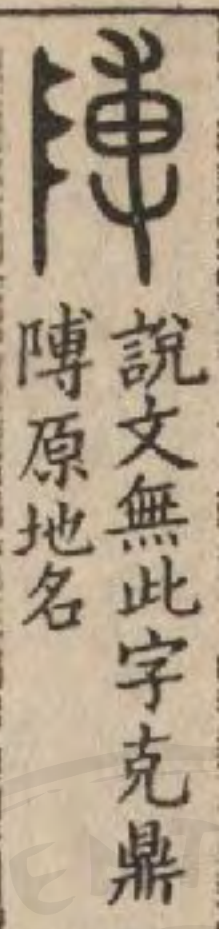 䧛
說文無此字克鼎
䧛原地名